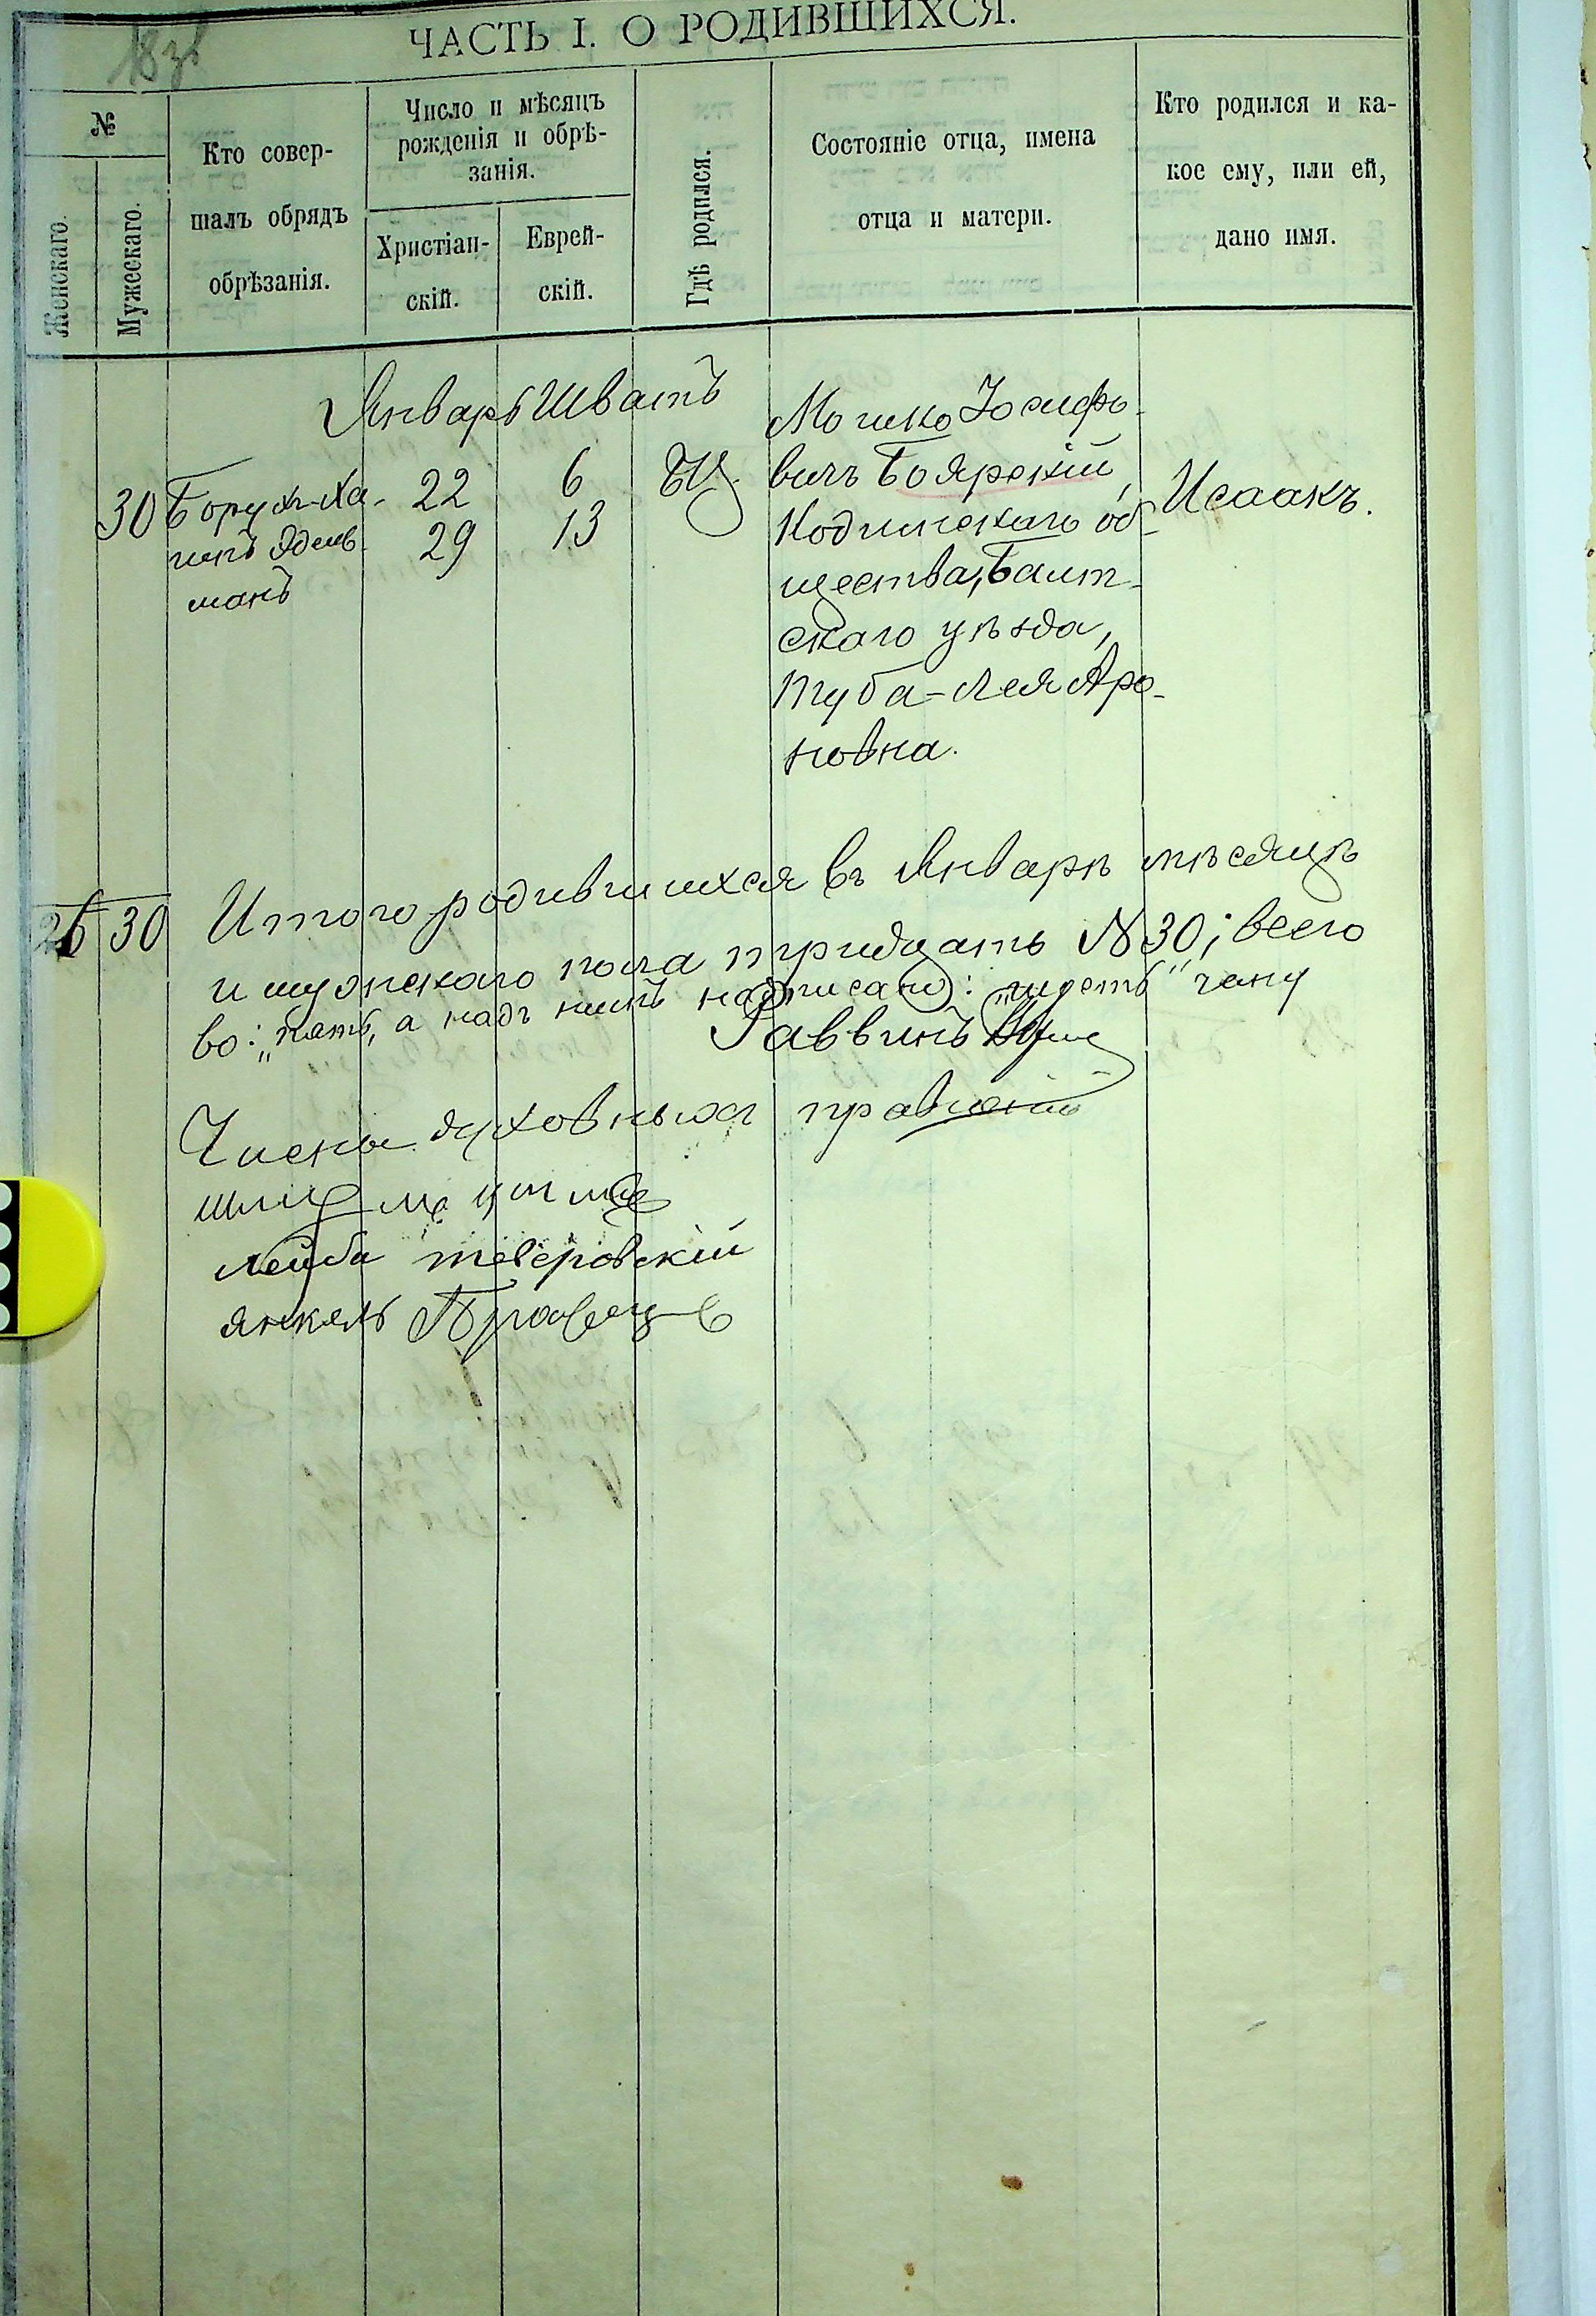 ЧАСТЬ I. О РОДИВШИХСЯ.
№
Женскаго.
Мужескаго.
Кто совер-
шалъ обрядъ
обрѣзанія.
Число и мѣсяцъ
рожденія и обрѣ-
занія.
Христіан-
скій.
Еврей-
скій.
Гдѣ родился.
Состояніе отца, имена
отца и матери.
Кто родился и ка-
кое ему, или ей,
дано имя.
Январь Шватъ
30 Борухъ-Ха- 22 6
имъ Эдель- 29 13
манъ
Мошко Іосифо-
вичъ Боярскій,
Кодимскаго об-
щества, Балт-
скаго уѣзда,
Туба-Лея Аро-
новна.
Исаакъ.
26 30 Итого родившихся въ Январѣ мѣсяцѣ
и мужскаго пола тридцать N30; всего
во: „пять, а надъ нимъ надписано: „шесть"
Раввинъ
Члены духовныхъ правленія
Лейба тверовскій
янкель